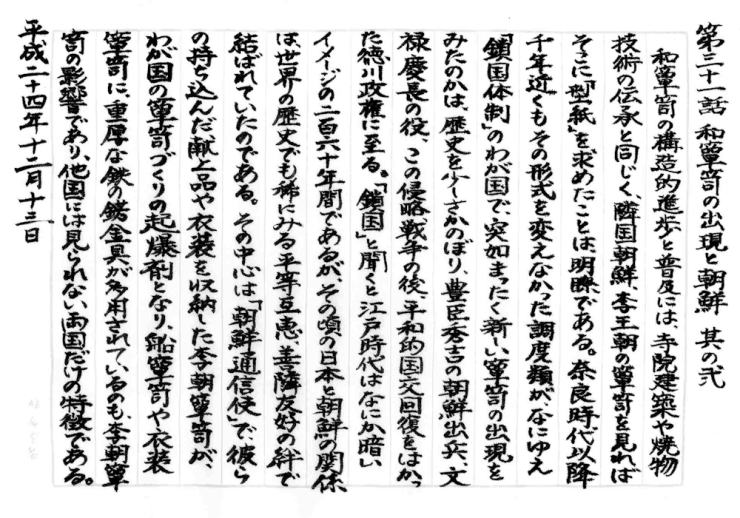 第三十一話 和簞笥の出現と朝鮮 其の弐
和簞笥の構造的進歩と普及には、寺院建築や焼物
技術の伝承と同じく、隣国朝鮮、李王朝の簞笥を見れば
そこに「型紙」を求めたことは明瞭である。奈良時代以降
千年近くもその形式を変えなかった調度類が、なにゆえ
「鎖国体制」のわが国で、突如まったく新しい簞笥の出現を
みたのかは、歴史を少しさかのぼり、豊臣秀吉の朝鮮出兵、文
禄慶長の役、この侵略戦争の後、平和的国交回復をはかっ
た徳川政権に至る。「鎖国」と聞くと江戸時代はなにか暗い
イメージの二百六十年間であるが、その頃の日本と朝鮮の関係
は、世界の歴史でも稀にみる平等互恵、善隣友好の絆で
結ばれていたのである。その中心は、「朝鮮通信使」で、彼ら
の持ち込んだ、献上品や衣装を収納した李朝簞笥が、
わが国の簞笥づくりの起爆剤となり、船簞笥や衣装
簞笥に、重厚な鉄の錺金具が多用されているのも、李朝簞
笥の影響であり、他国には見られない両国だけの特徴である。
平成二十四年十二月十三日